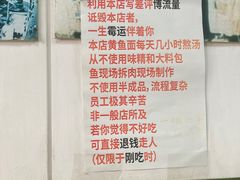 利用本店写差评博流量
诋毁本店者，
一生霉运伴着你
本店黄鱼面每天几小时熬汤
从不使用味精和大料包
鱼现场拆肉现场制作
不使用半成品，流程复杂
员工极其辛苦
非一般店所及
若你觉得不好吃
可直接退钱走人
（仅限于刚吃时）